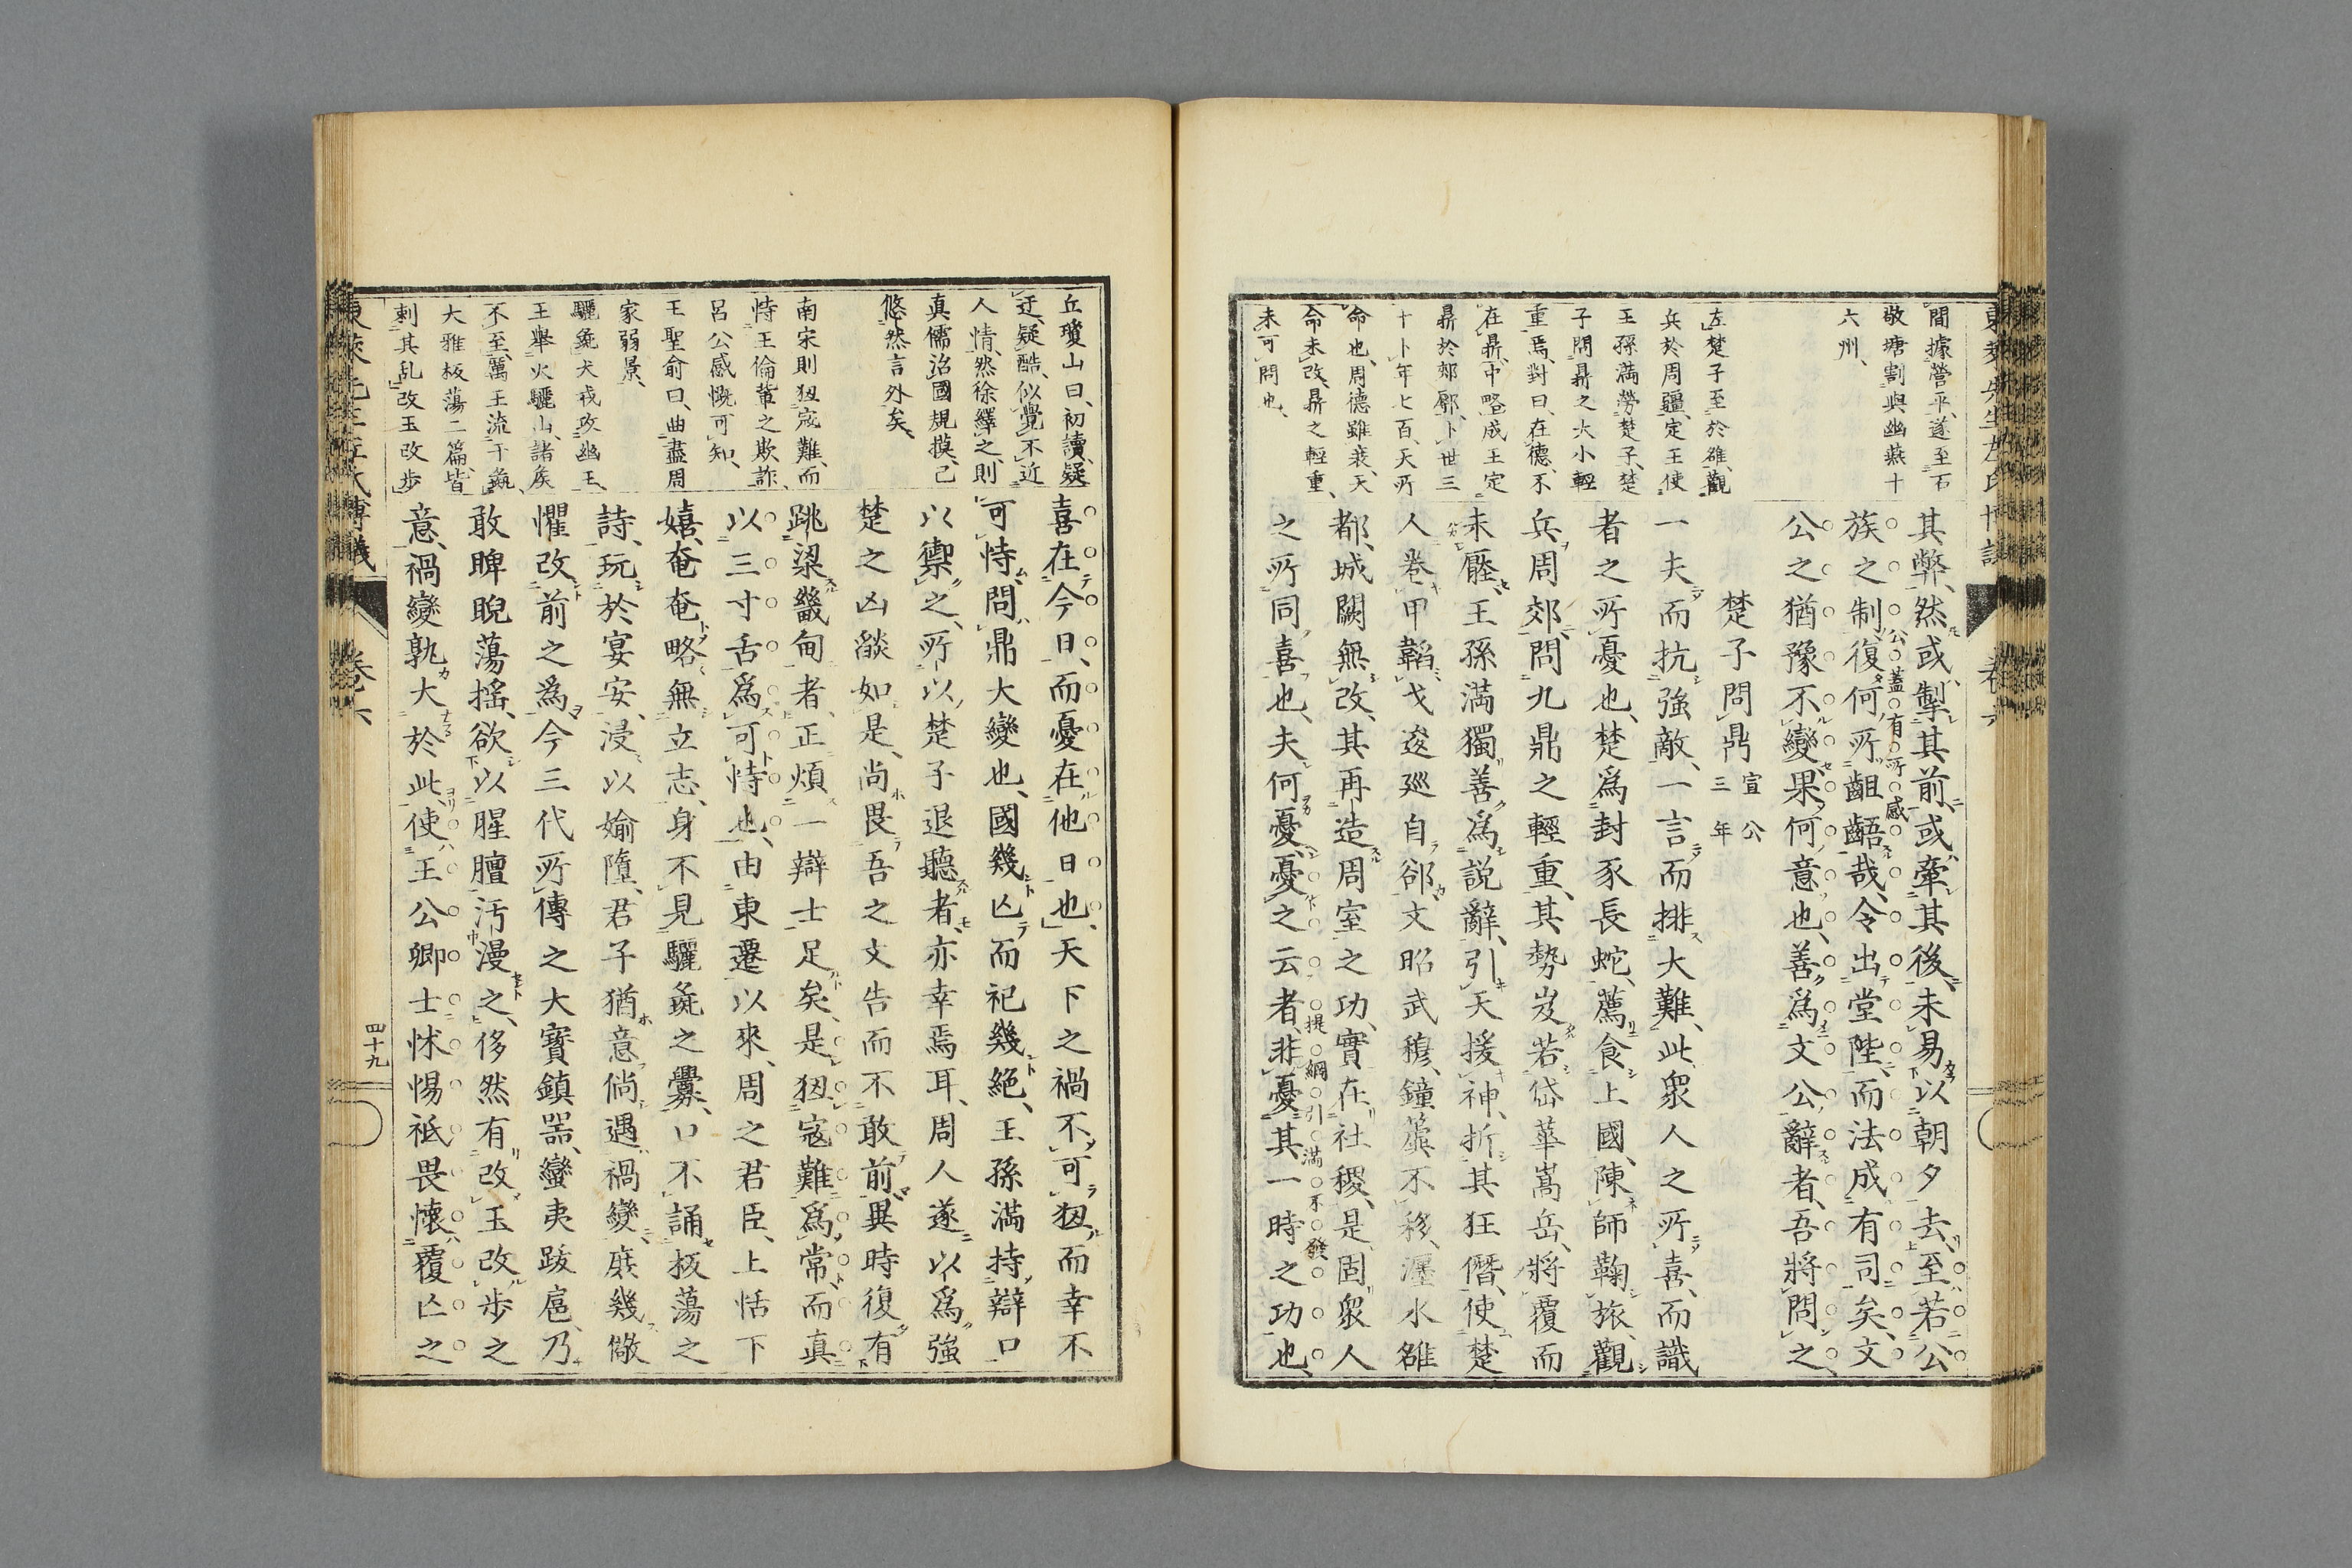 間據營平、遂至石
敬塘割與幽燕十
六州、
左楚子至於雒、觀
兵於周疆、定王使
王孫滿勞楚子、楚
子問鼎之大小輕
重焉、對曰、在德、不
在鼎、中略成王定
鼎於郟鄏、卜世三
十卜年七百、天所
命也、周德雖衰、天
命未改、鼎之輕重、
未可問也、
其弊、然或掣其前、或牽其後、未易以朝夕去、至若公
族之制、復何所齟齬哉、令出堂陛、而法成有司矣、文
公蓋有所感
公之猶豫不變、果何意也、善爲文公辭者、吾將問之、
楚子問鼎 宣公三年
一夫而抗強敵、一言而排大難、此衆人之所喜、而識
者之所憂也、楚爲封豕長蛇、薦食上國、陳師鞠旅、觀
兵周郊、問九鼎之輕重、其勢岌若岱華嵩岳、將覆而
未壓、王孫滿獨善爲說辭、引天援神、折其狂僭、使楚
人卷甲韜戈逡巡自郤、文昭武穆、鐘簴不移、瀍水雒
都、城闕無改、其再造周室之功、實在社稷、是固衆人
之所同喜也、夫何憂、憂之云者、非憂其一時之功也、
提綱引滿不發
丘瓊山曰、初讀、疑
迂、疑酷、似覺不近
人情、然徐繹之、則
真儒治國規摸、已
悠然言外矣、
南宋則狃寇難、而
恃王倫輩之欺詐、
呂公感慨可知、
王聖俞曰、曲盡周
家弱景、
驪毚犬戎攻幽王、
王舉火驪山、諸矦
不至、萬王流于彘、
大雅板蕩二篇、皆
刺其乱、改玉改步
喜在今日、而憂在他日也、天下之禍不可狃、而幸不
可恃、問鼎大變也、國幾亾而祀幾絕、王孫滿持辯口
以禦之、所以楚子退聽者、亦幸焉耳、周人遂以爲強
楚之凶燄如是、尚畏吾之文告而不敢前、異時復有
跳梁畿甸者、正煩一辯士足矣、是狃寇難爲常、而真
以三寸舌爲可恃也、由東遷以來、周之君臣、上恬下
嬉、奄奄略無立志、身不見驪毚之釁、口不誦板蕩之
詩、玩於宴安、浸以媮墮、君子猶意倘遇禍變、庶幾儆
懼改前之爲、今三代所傳之大寶鎮噐、蠻夷跋扈、乃
敢睥睨蕩搖、欲以腥膻汚漫之、侈然有改玉改步之
意、禍變孰大於此、使王公卿士怵惕祗畏、懷覆亾之
四十九